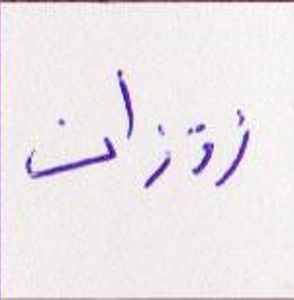 زۆزان